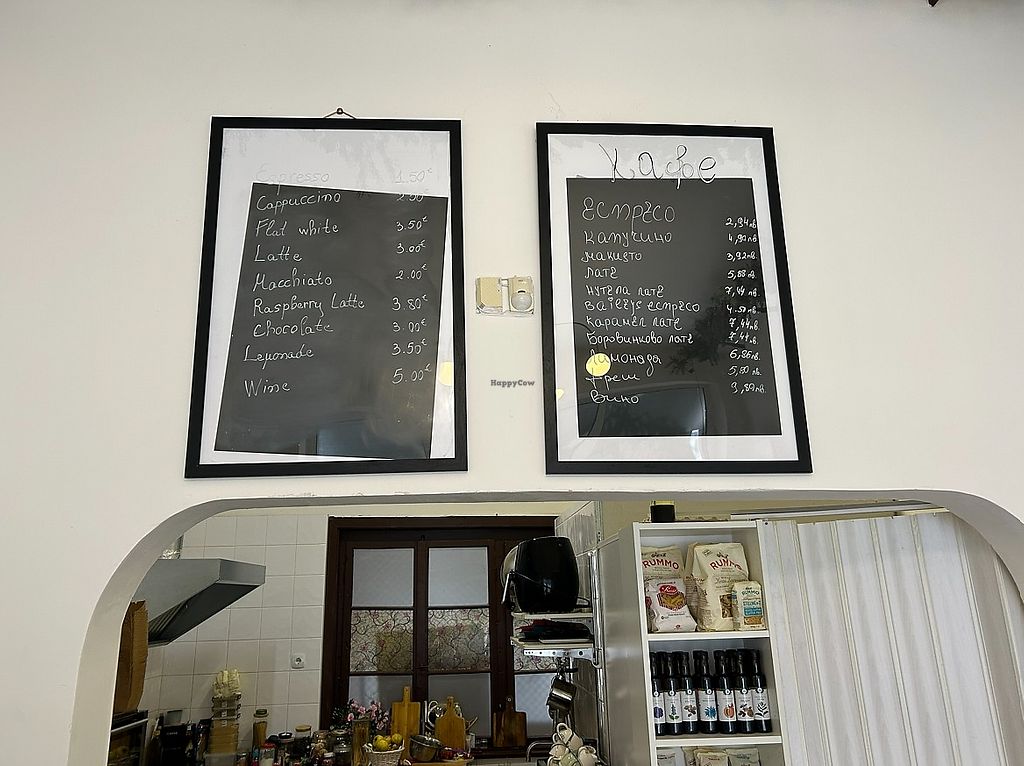 Espresso 1.50€
Cappuccino 2.50
Flat white 3.50€
Latte 3.00€
Macchiato 2.00€
Raspberry Latte 3.80€
Chocolate 3.00€
Lemonade 3.50€
Wine 5.00€
Кафе
Еспресо 2,94лв
Капучино 4,90лв.
Макиато 3,92лв.
Лате 5,88лв.
Нутела лате 7,44лв.
Baileys еспресо 4.50лв.
Карамел лате 7,44лв.
Боровинково лате 7,44лв.
Лимонада 6,86лв.
Фреш
Вино 9,80лв.
HappyCow
RUMMO
RUMMO
RUMMO